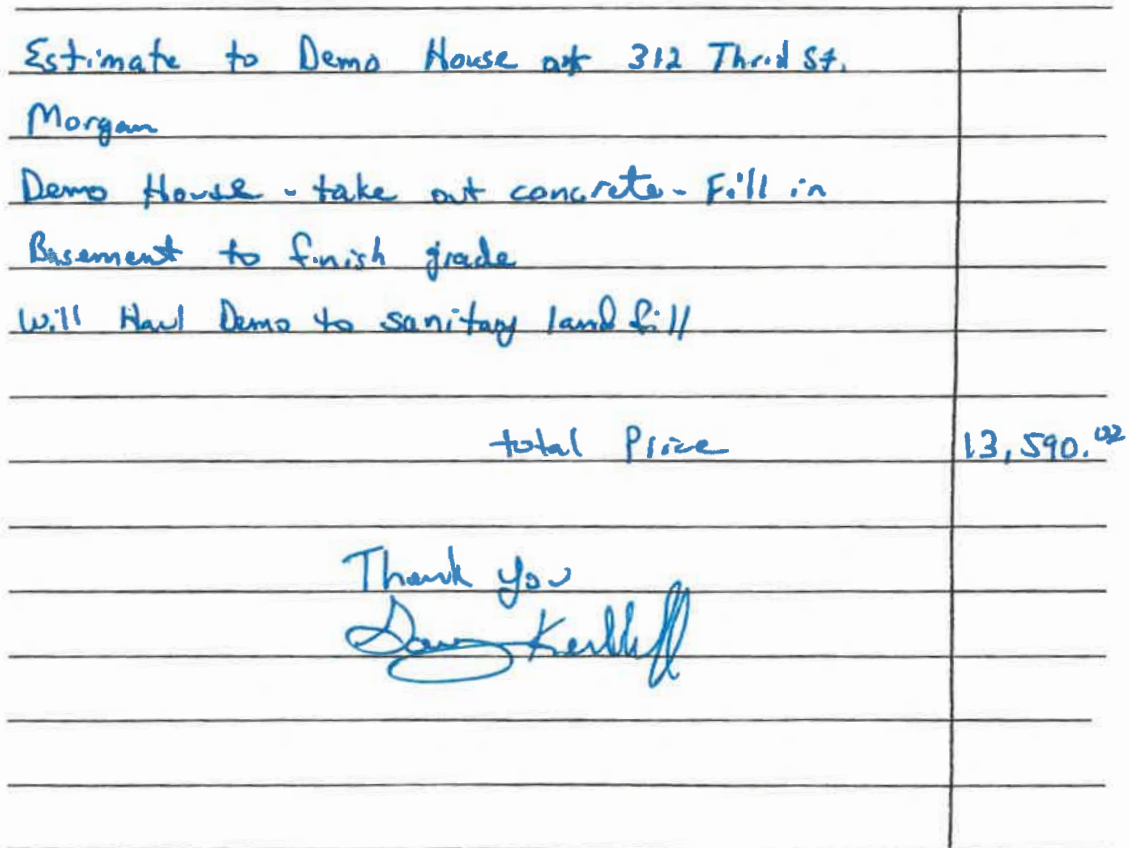 Estimate to Demo House at 312 Thrid St.
Morgan
Demo House - take out concrete - Fill in
Basement to finish grade
Will Haul Demo to sanitary land fill
total Price 13,590.
Thank you